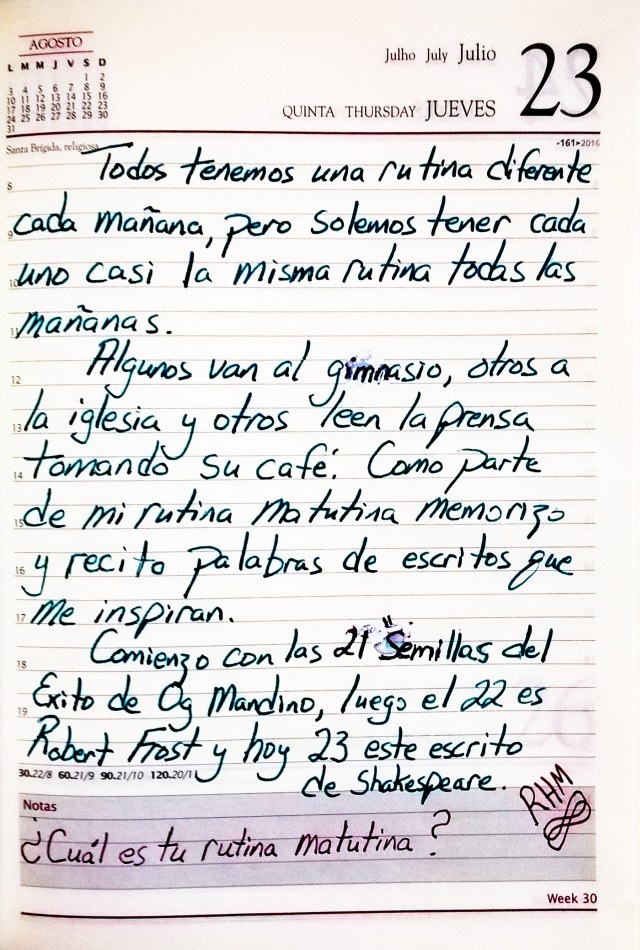 AGOSTO
L M M J V S D
1 2
3 4 5 6 7 8 9
10 11 12 13 14 15 16
17 18 19 20 21 22 23
24 25 26 27 28 29 30
31
Julho July Julio
QUINTA THURSDAY JUEVES
23
Santa Brígida, religiosa
-161>2016
8 Todos tenemos una rutina diferente
9 cada mañana, pero solemos tener cada
10 uno casi la misma rutina todas las
11 mañanas.
12 Algunos van al gimnasio, otros a
13 la iglesia y otros leen la prensa
14 tomando su café. Como parte
15 de mi rutina matutina memorizo
16 y recito palabras de escritos que
17 me inspiran.
18 Comienzo con las 21 Semillas del
19 Éxito de Og Mandino, luego el 22 es
Robert Frost y hoy 23 este escrito
30.22/8 60.21/9 90.21/10 120.20/1
de Shakespeare.
RHM
Notas
¿Cuál es tu rutina matutina?
Week 30